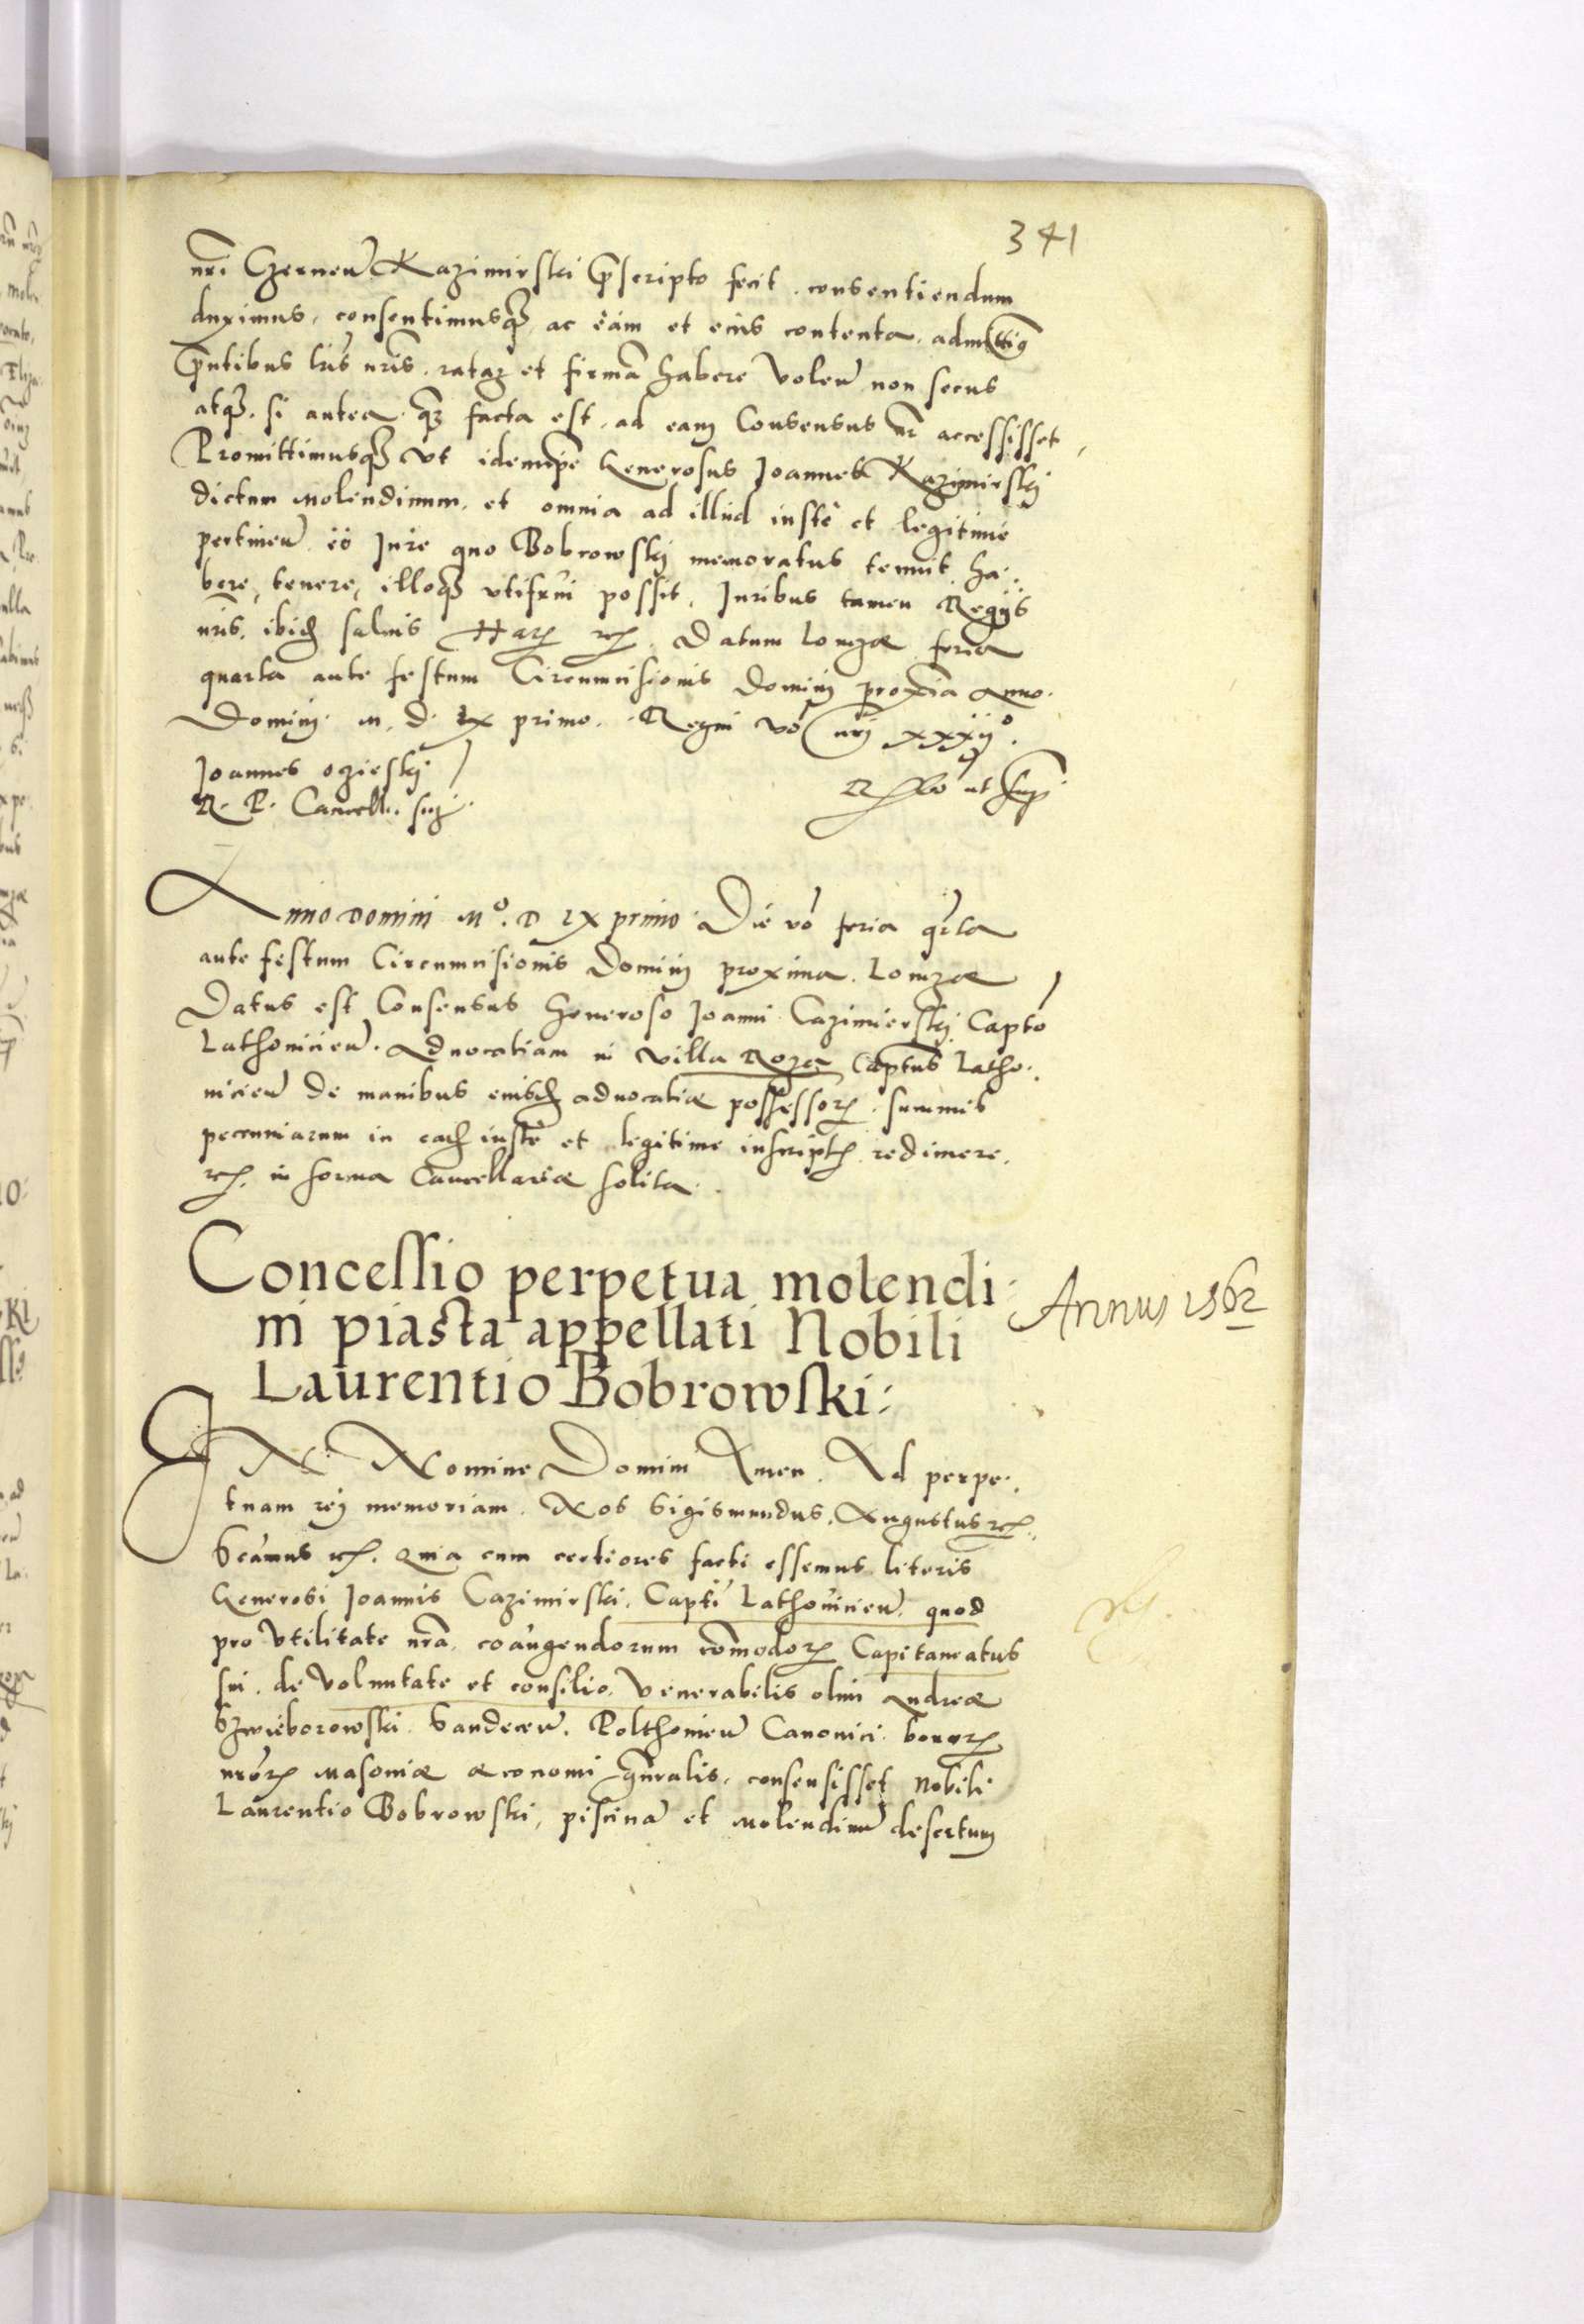 341
nri Czernen Kazimirski pscripto fecit. consentiendum
duximus, consentimusq, ac eam et eius contenta, admittim9
pntibus lris nris. ratam et firma habere volen non secus
atq. si antea. q facta est, ad eam Consensus nr accessisset,
Promittimusq Vt idem Generosus Joannes Kazimirskj
dictum molendinum, et omnia ad illud iuste et legitime
pertinen eo Jure quo Bobrowskj memoratus tenuit ha:
bere, tenere, illoq vtifrui possit, Juribus tamen Regijs
nris, ibid saluis Har rc. Datum Lomzæ feria
quarta ante festum Circumcisionis Dominj proxima Anno.
Dominj. M. D. LX primo. Regni vo nrj xxxijº.
Joannes ozieskj
R. P. Cancell. ssz.
Rlo ut sup
Anno Domini Mº. D LX primo. Die vo feria qrta
ante festum Circumcisionis Dominj proxima. Lomzæ
Datus est Consensus Generoso Joanni Cazimierskj Capto
Lathouicien. Aduocatiam in villa Roza Captus Latho:
uicien de manibus eiusd aduocatiæ possessor. summis
pecuniarum in ead iuste et legitime inscript redimere.
rc. in forma Cancellariæ solita.
Concessio perpetua molendi:
ni piasta appellati Nobili
Laurentio Bobrowski:
Annus 1562
IN Nomine Domini Amen. Ad perpe:
tuam rej memoriam. Nos Sigismundus. Augustus rc.
Scamus rc. Quia cum certiores facti essemus literis
Generosi Joannis Cazimirski, Capti Lathouicien. quod
pro Vtilitate nra, coaugendorum comodor Capitaneatus
sui. de Voluntate et consilio, Venerabilis olim Andreæ
Szwieborowski. Sandecen. Polthouien Canonici. bonor
nror Masouiæ æconomi gnralis, consensisset Nobili
Laurentio Bobrowski, piscina et Molendinu desertum